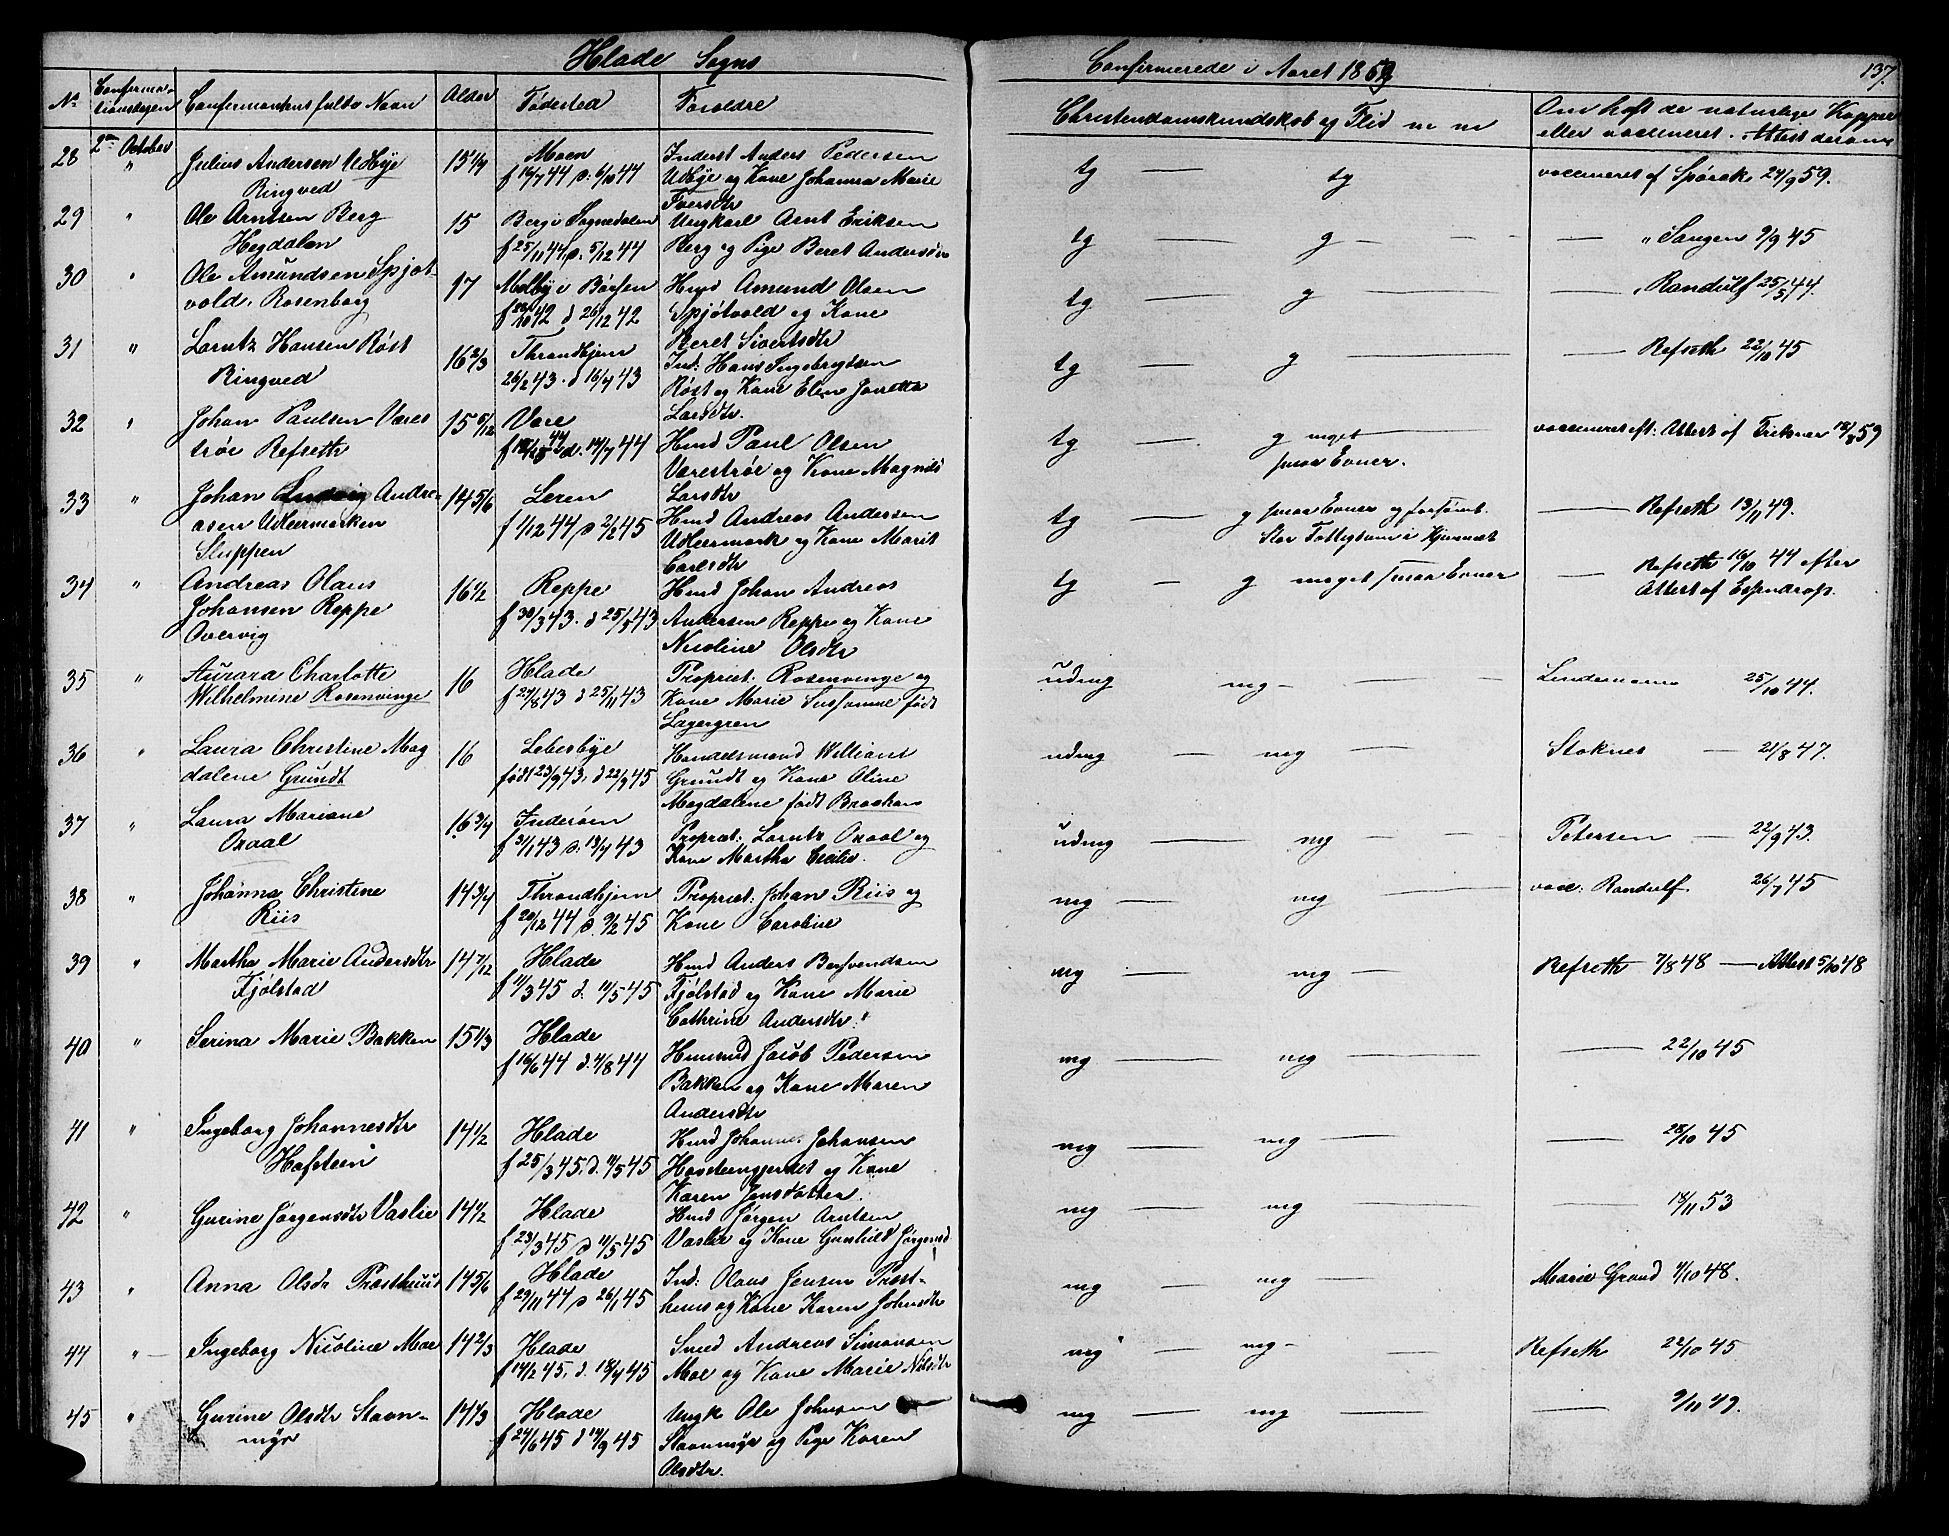 Hlade Sogns
Confirmerede i Aaret 1859
137.
No
Confirma-
tionsdagen
Confirmandens fulde Navn
Alder
Fødested
Forældre
Christendomskundskab og Flid m m
Om haft de naturlige Kopper
eller vaccineret. Attest derom
2den October
28 " Julius Andersen Udbye 15 1/4 Moen Inderst Anders Pedersen tg — tg vaccineret af 24/9 59.
Ringved f 16/7 44 d. 6/10 44 Udbye og Kone Johanna Marie
Iversdtr
29 " Ole Arntsen Berg 15 Berg i Sognedalen Ungkarl Arnt Eriksen tg — g — — " Sangen 9/9 45
Hegdalen f 25/11 44, d. 5/12 44 Berg og Pige Beret Andersdtr
30 " Ole Amundsen Spjøt- 17 Melbye Børsen Hmd Amund Olsen tg — g — — " Randulf 25/5 44.
vold, Rosenborg d 26/12 42 Spjøtvold og Kone
Beret Sivertsdtr
31 " Lorntz Hansen Røst 16 2/3 Throndhjem Ind: Hans Ingebrigtsen tg — g — — Refseth 22/10 45
Ringved 26/2 43. d 16/4 43 Røst og Kone Elen
Larsdtr.
32 " Johan Paulsen Vares 15 5/12 Vare Hmd Paul Olsen tg — g meget — vaccineret eft: Attest af 18/8 59
trøe Refseth d. 14/7 44 Varestrøe og Kone Magnild smaa Evner.
Larsdtr
33 " Johan Ludvig Andre- 14 5/6 Leren Hmd Andreas Andersen tg — g smaa Evner og forsømt. — Refseth 13/11 49.
asen Udleermarken f 1/12 44, d 2/2 45 Udleermark og Kone Marit Stor Fattigdom i Hjemmet
Sluppen Carlsdtr
34 " Andreas Olaus 16 1/2 Reppe Hmd Johan Andreas tg — g meget smaa Evner — Refseth 16/10 44 efter
Johansen Reppe f 30/3 43. d 25/5 43 Andersen Reppe og Kone Attest af
Overvig Nicoline Olsdtr
35 " Aurora Charlotte 16 Hlade Propriet. Rosenvinge og udmg mg — — Lindemann 25/10 44.
Wilhelmine Rosenvinge f 27/8 43 d 25/11 43 Kone Marie Susanne født
Lagergren
36 " Laura Christine Mag 16 Lebesbye Handelsmand William udmg — mg — Stoknes — 21/8 47.
dalene Grundt født 23/9 43. d 22/9 45 Grundt og Kone Oline
Magdalene født
37 " Laura Mariane 16 3/4 Inderøen Propriet: Lorntz Oxaal og udmg — mg — Petersen — 22/9 43.
Oxaal f 31/1 43 d. 13/4 43 Kone Martha Cecilie.
38 " Johanna Christine 14 3/4 Throndhjem Propriet: Johan Riis og mg — mg — vacc: Randulf. 26/7 45
Riis f 20/12 44, d. 9/2 45 Kone Caroline
39 " Martha Marie Andersdtr 14 7/12 Hlade Hmd Anders Bersvendsen mg — mg — Refseth 7/8 48 — Attest 5/10 48
Fjølstad f 11/3 45 d. 11/5 45 Fjølstad og Kone Marie
Cathrine Andersdtr."
40 " Serina Marie Bakken 15 1/3 Hlade Huusmd Jacob Pedersen mg — mg — — 22/10 45
f 16/6 44 d. 4/8 44 Bakken og Kone Maren
Andersdtr
41 " Ingeborg Johannesdtr 14 1/2 Hlade Hmd Johannes Johansen mg — mg — — 28/10 45
Hafsteen f 25/3 45, d. 11/5 45 og Kone
Karen Jensdatter.
42 " Gurine Jørgensdtr Vaslie 14 1/2 Hlade Hmd Jørgen Arntsen mg — mg — — 18/11 53
f 23/3 45, d 11/5 45 Vaslie og Kone Gunhild Jørgensd
43 " Anna Olsdr Præsthuus 14 5/6 Hlade Ind: Olaus Jensen Præst- mg — mg — Marie Grand 4/10 48.
f 29/11 44, d 26/1 45 huus og Kone Karen Johnsdtr
44 " Ingeborg Nicoline Moe 14 2/3 Hlade Smed Andreas Simonsen mg — mg — Refseth 22/10 45
f 14/2 45, d. 18/4 45 Moe og Kone Marie Nilsdtr
45 " Gurine Olsdtr Stavn- 14 1/3 Hlade Ungk Ole Johnsen mg — mg — — 9/11 49.
myr f 24/6 45 d 14/9 45 Stavnmyr og Pige Karen
Olsdtr.